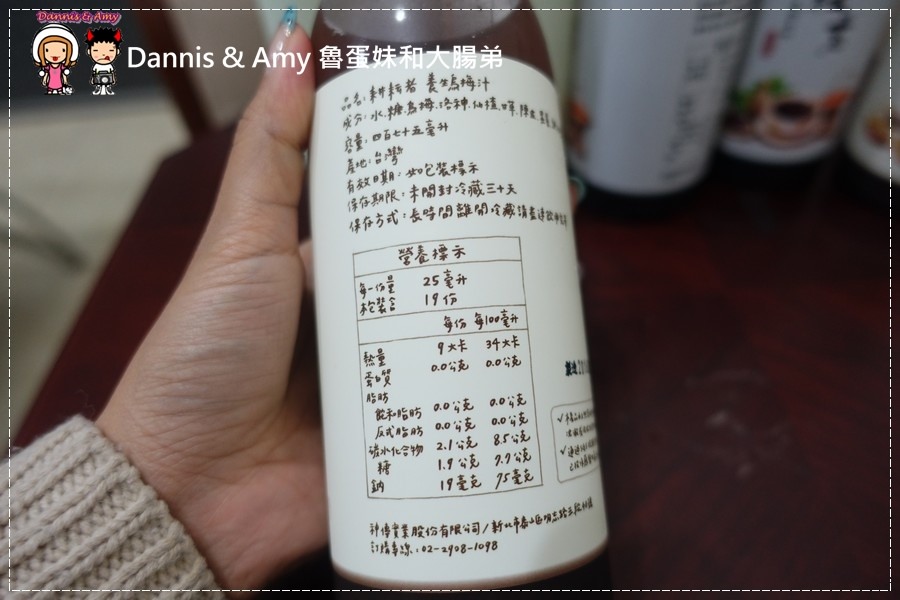 Dannis & Amy
Dannis & Amy 魯蛋妹和大腸弟
品名:耕耘者 養生烏梅汁
成分:水、糖、烏梅、洛神、仙楂、陳皮
容量:四百七十五毫升
產地:台灣
有效日期:如包裝標示
保存期限:未開封冷藏三十天
保存方式:長時間離開冷藏請盡速飲用
營養標示
每一份量 25毫升
本包裝含 19份
每份 每100毫升
熱量 9大卡 34大卡
蛋白質 0.0公克 0.0公克
脂肪
飽和脂肪 0.0公克 0.0公克
反式脂肪 0.0公克 0.0公克
碳水化合物 2.1公克 8.5公克
糖 1.9公克 7.7公克
鈉 19毫克 75毫克
神傳實業股份有限公司/新北市泰山區明志路三段
訂購專線:02-2908-1098